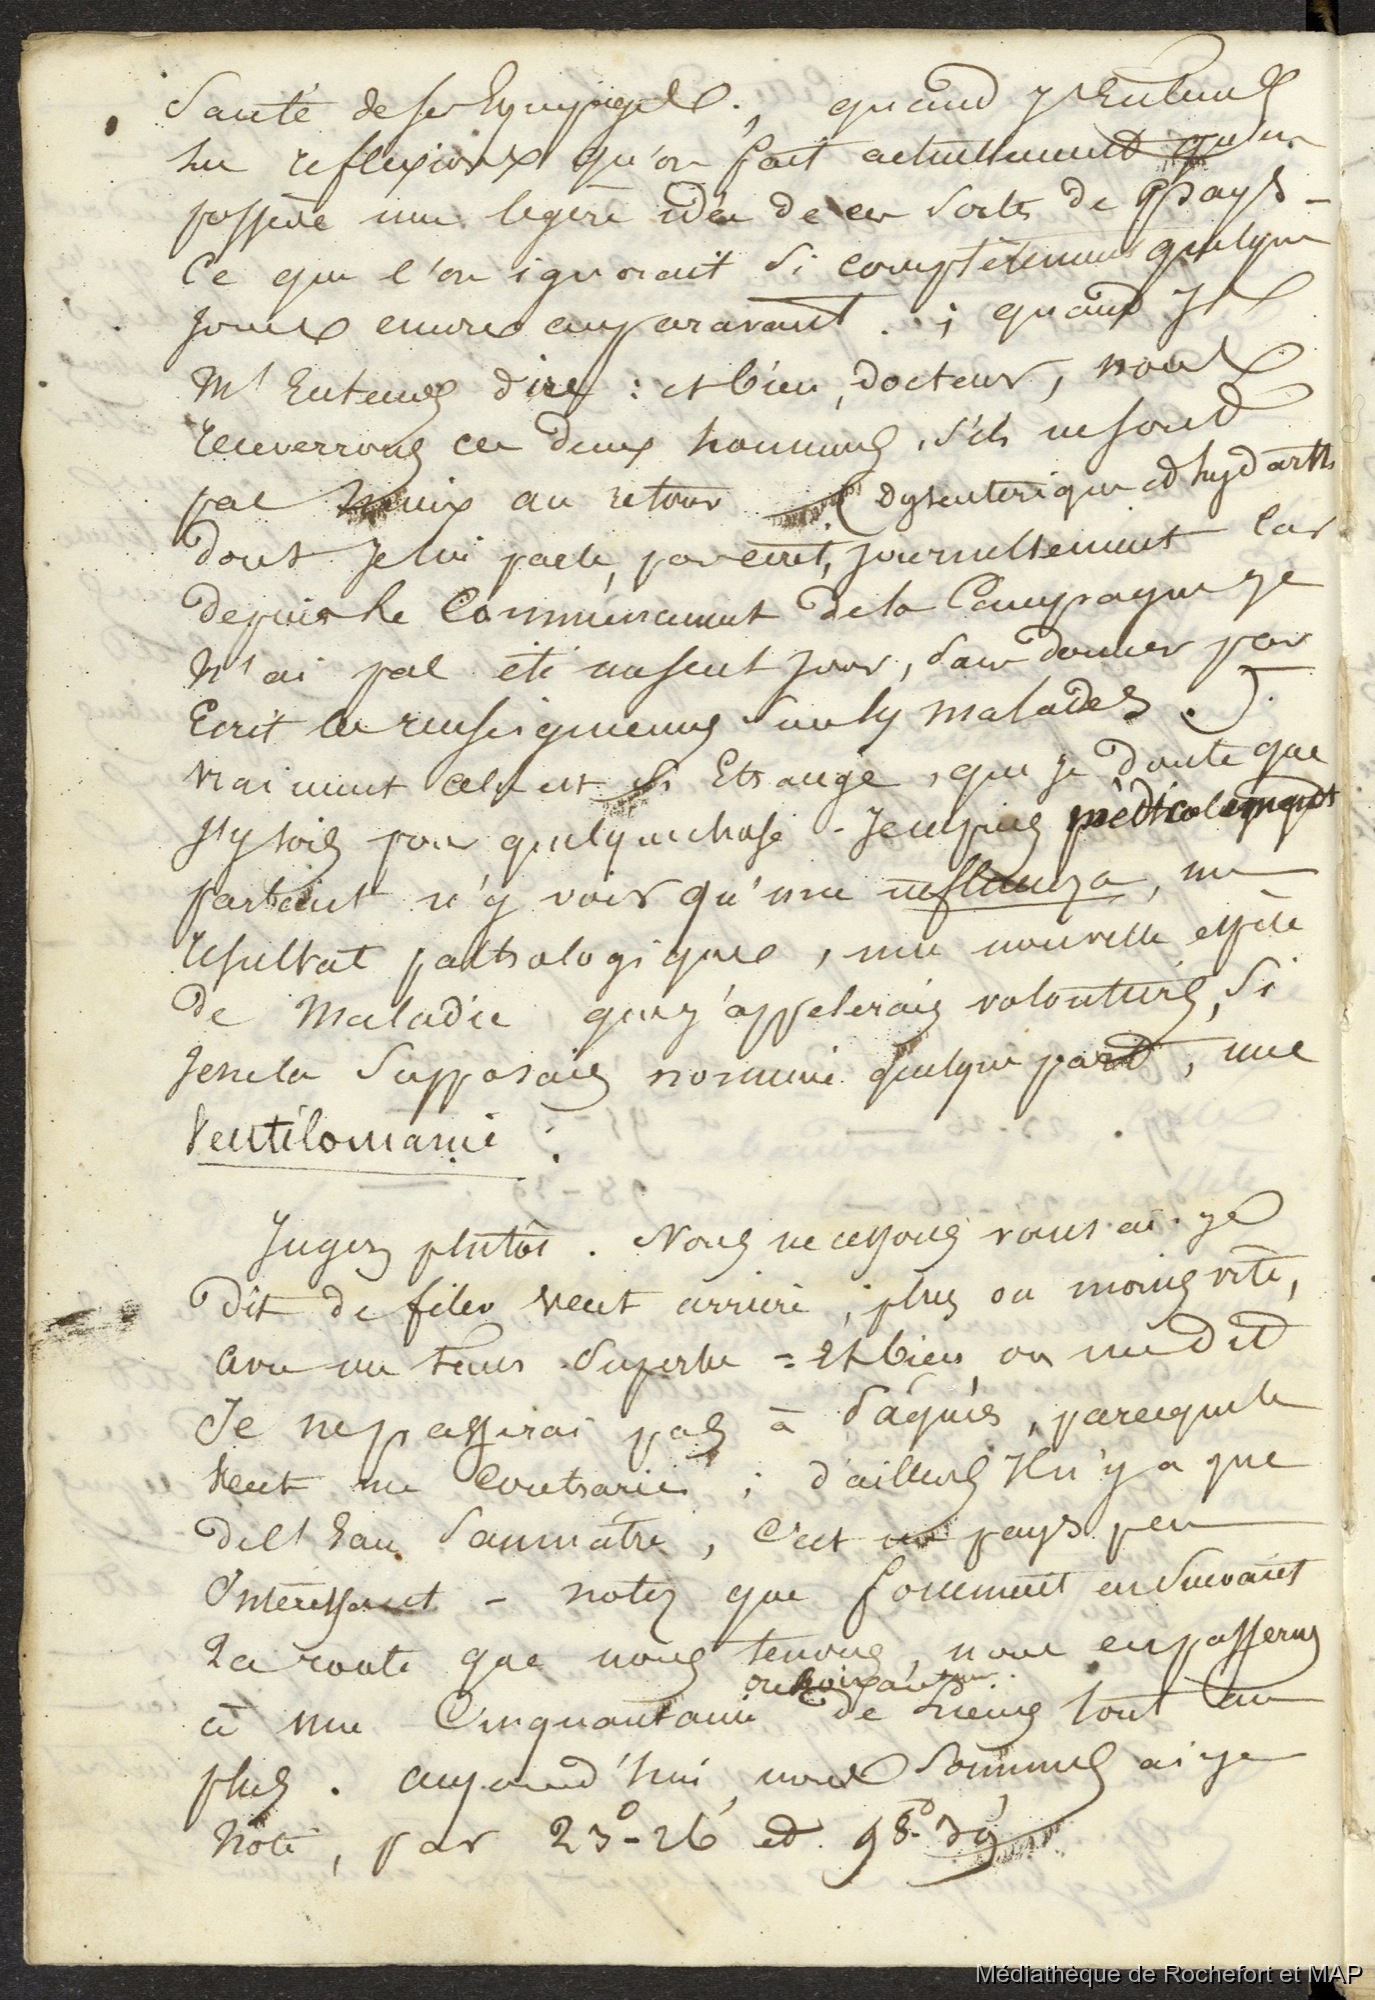 Santé de ses Equipages ; quand j'Entends
les reflexions qu'on fait actuellement
possède une legère idée de ces sortes de Pays -
Ce que l'on ignorait si complètement quelques
jours encore auparavant . ; quand je
M' Entends dire : et bien, docteur, nous
renverrons ces deux hommes, s'ils ne sont
pas mieux au retour ( dysenterique et hydarth
dont je lui parle, par ecrit, journellement Car
depuis le Commencement de la Campagne je
N'ai pas été un seul jour, sans donner par
Ecrit les renseignemens sur les malades . )
vraiment cela est si Etrange, que je doute que
j'y sois pour quelquechose - Je ne puis médicalement
partant n'y voir qu'une influenza, un
resultat pathologique, une nouvelle espèce
de Maladie que j'appelerais volontiers, si
Je ne la supposais nommée quelque part, une
Ventilomanie :
Jugez plutôt . Nous ne cessons vous ai-je
dit de filer vent arrière, plus ou moins vite,
avec un tems superbe = Et bien on me dit
Je ne passerai pas à , parceque le
Vent me Contrarie ; d'ailleurs Il n'y a que
de l'Eau Saumâtre, C'est un pays peu
Intéressant - notez que forcément en Suivant
La route que nous tenons, nous en passerons
à une Cinquantaine ou soixantaine de lieues tout au
plus . aujourd'hui, nous sommes ai-je
Noté, par 23°-26' et 98°-39'
Médiathèque de Rochefort et MAP